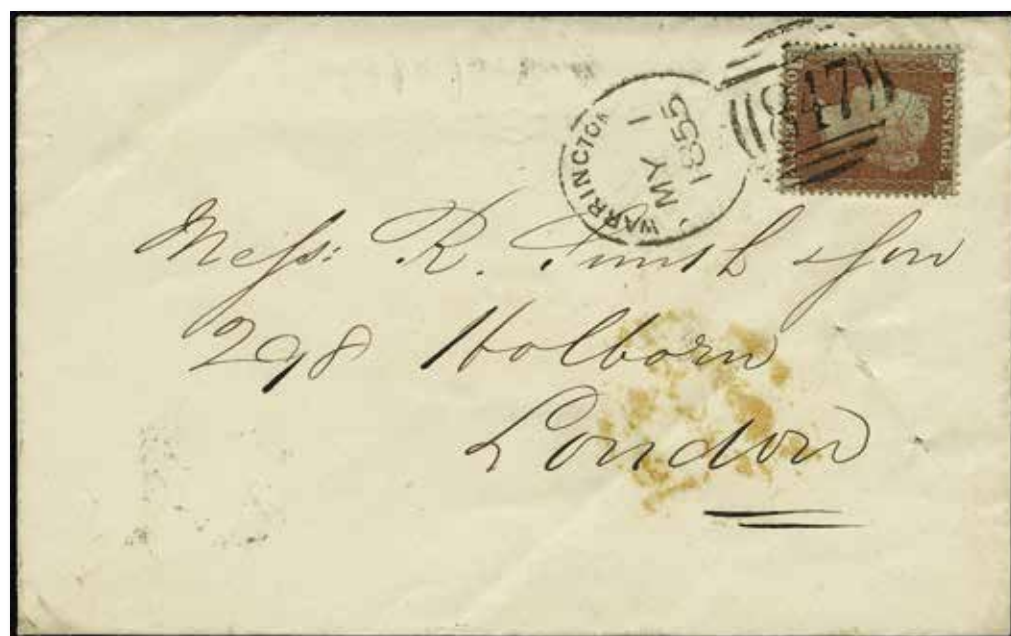 WARRINGTON
MY 1
1855
847
POSTAGE
ONE PENNY
Messs: R. Smith & Son
298 Holborn
London